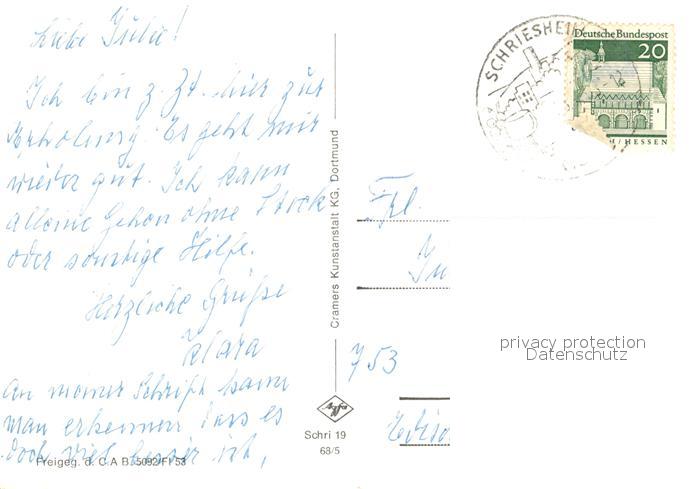 Liebe Julie!
Ich bin z. Zt. hier zur
Erholung. Es geht mir
wieder gut. Ich kann
alleine gehen ohne Stock
oder sonstige Hilfe.
Herzliche Grüße
Klara
An meiner Schrift kann
man erkennen dass es
doch viel besser ist,
Freigeg. d. C A B. 5092/FI 53
Cramers Kunstanstalt KG. Dortmund
Agfa
Schri 19
68/5
SCHRIESHEIM
Deutsche Bundespost
20
H/HESSEN
Frl.
753
privacy protection
Datenschutz